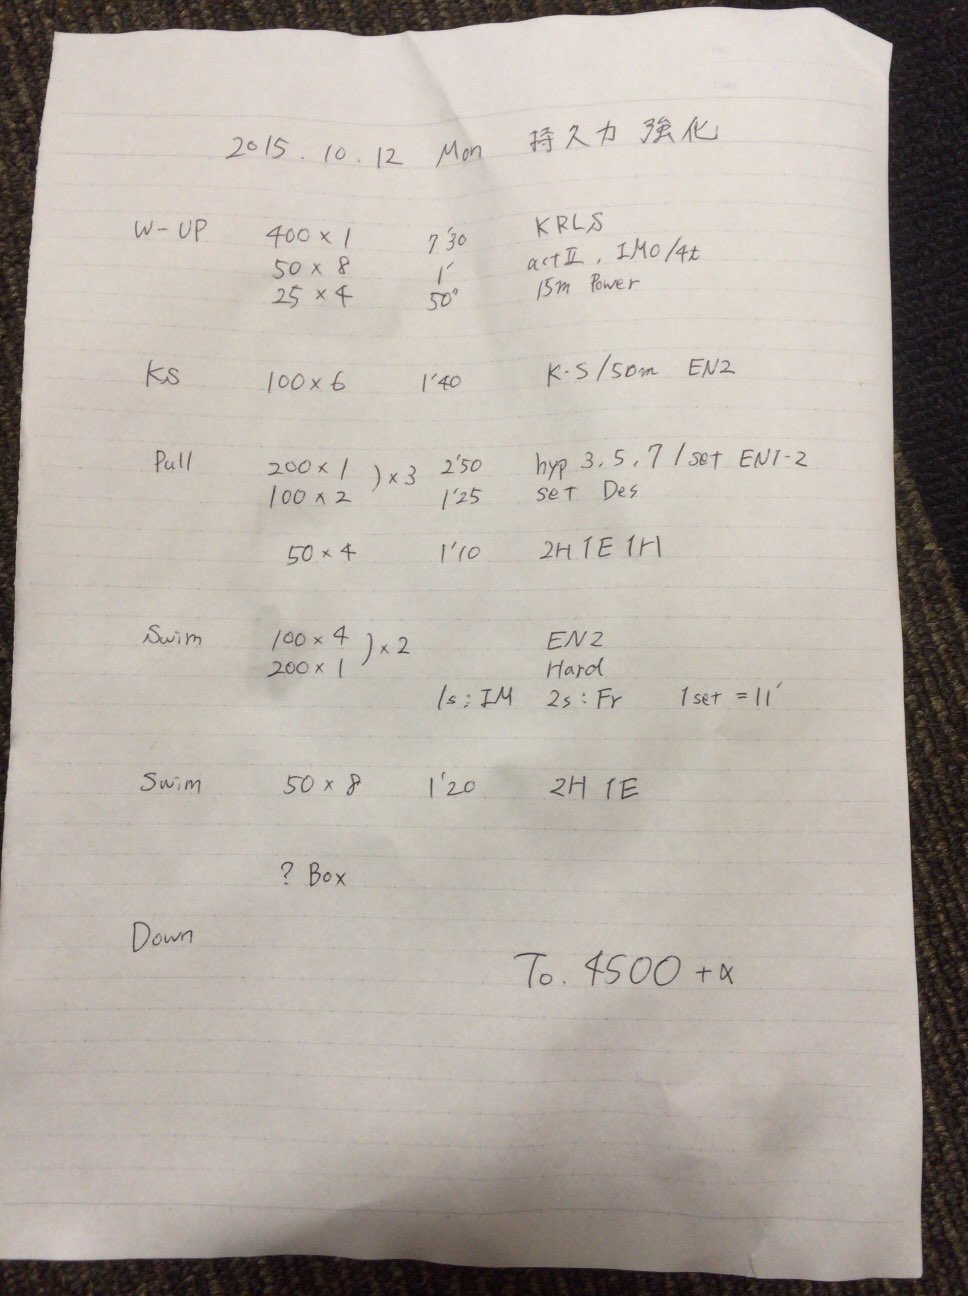 2015.10.12 Mon 持久力強化
W-UP 400×1 7'30 KRLS
50×8 1' act II, IMO/4t
25×4 50" 15m Power
KS 100×6 1'40 K・S/50m EN2
Pull 200×1 )×3 2'50 hyp 3,5,7/set EN1-2
100×2 1'25 set Des
50×4 1'10 2H 1E 1H
Swim 100×4 )×2 EN2
200×1 Hard
1s:IM 2s:Fr 1set=11'
Swim 50×8 1'20 2H 1E
? Box
Down
To. 4500+α